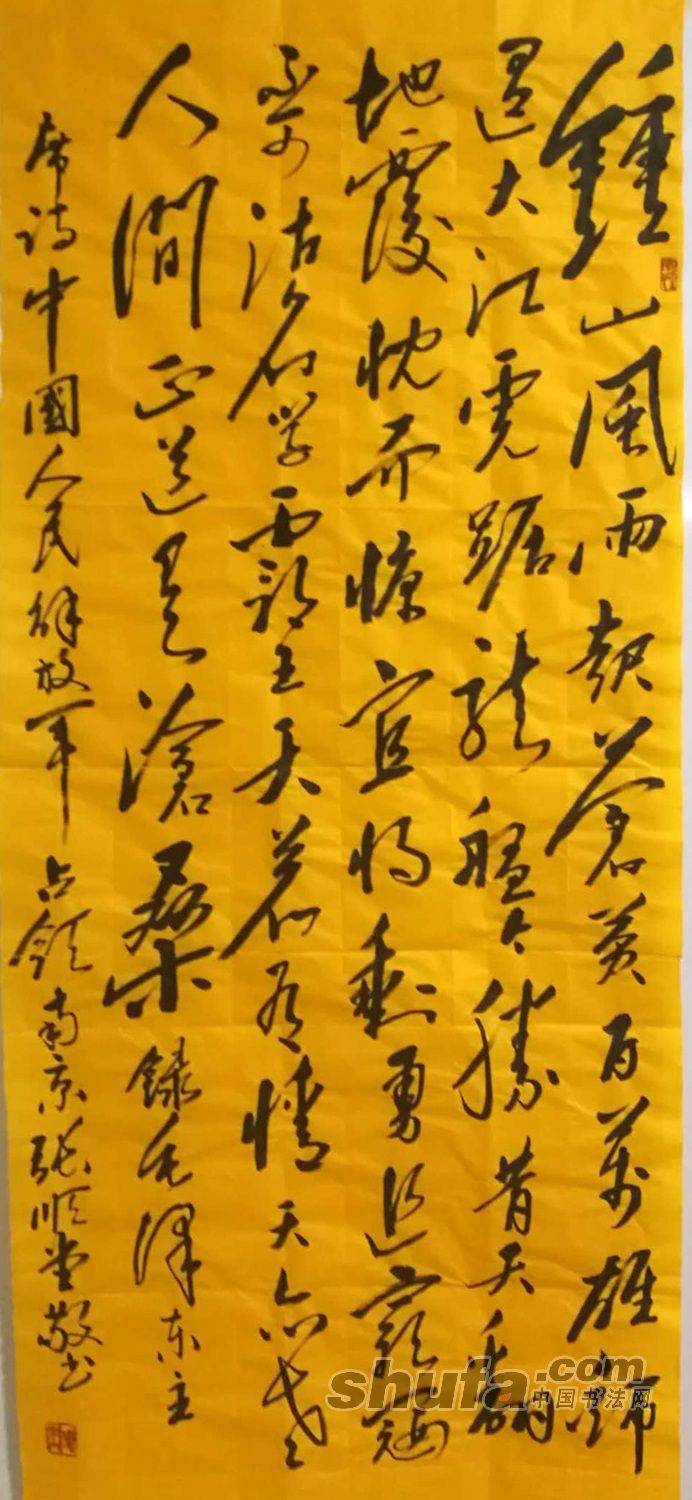 鍾山風雨起蒼黄百萬雄師
過大江虎踞龍盤今勝昔天翻
地覆慨而慷宜将剩勇追窮寇
不可沽名学霸王天若有情天亦老
人間正道是滄桑録毛澤东主
席诗中國人民解放军占领南京张顺堂敬书
shufa.com
中国书法网